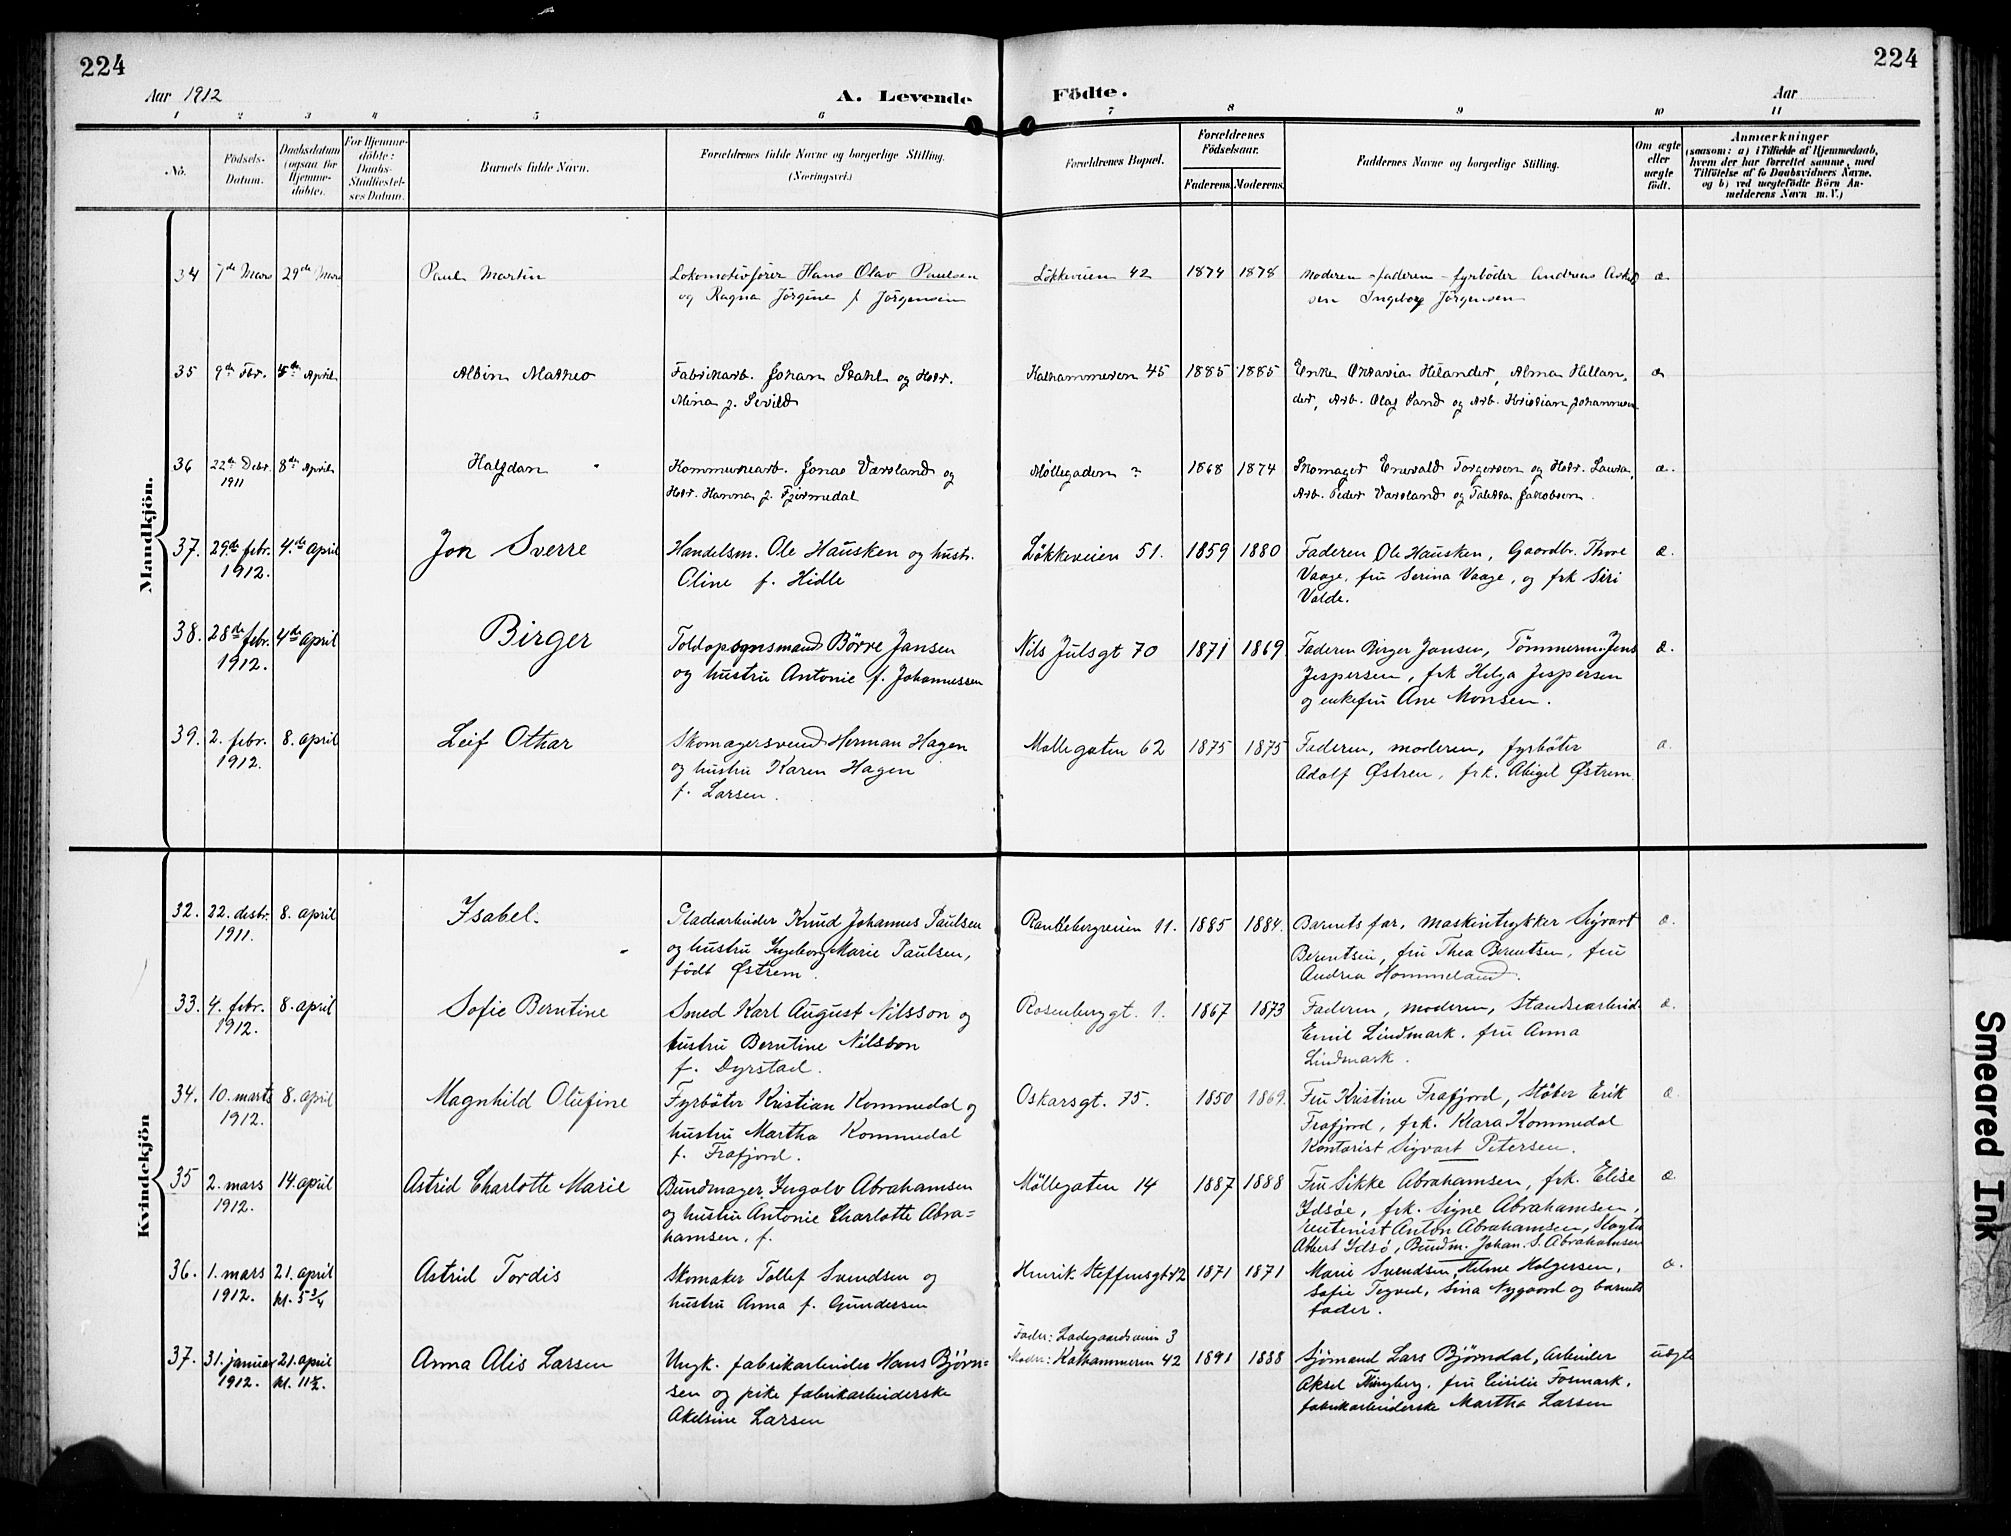 224
224
Aar 1912
A. Levende Födte.
Aar
1 2 3 4 5 6 7 8 9 10 11
No.
Födsels-Datum.
Daabsdatum (ogsaa for Hjemmedöbte).
For Hjemmedöbte: Daabs-Stadfæstelses Datum.
Barnets fulde Navn.
Forældrenes fulde Navne og borgerlige Stilling.
(Næringsvei.)
Forældrenes Bopæl.
Forældrenes Födselsaar.
Faderens. Moderens.
Faddernes Navne og borgerlige Stilling.
Om ægte eller uægte födt.
Anmærkninger
(saasom: a) i Tilfælde af Hjemmedaab, hvem der har forrettet samme, med Tilföielse af to Daabsvidners Navne, og b) ved uægtefödte Börn Anmelderens Navn m. V.)
Mandkjön.
34 7de Mars 29de Mars Paul Martin Lokomotivfører Hans Olav Paulsen Løkkeveien 42 1874 1878 Moderen - faderen - fyrbøder Andreas Asked æ
og Ragna Jörgine f Jörgensen sen Ingeborg Jörgensen
35 9de Febr. 4de April Albin Matheo Fabrikarb. Johan Stahl og Hstr. Kalhammeren 45 1885 1885 Enke Oktavia Helander, Alma Hellan- æ
Alina f. Sevild der, Arb. Olaf Sand og Arb. Kristian Johannesen
36 22de Debr. 8de April Halfdan Kommunearb. Jonas Værsland og Møllegaden ? 1868 1874 Skomager Enevald Torgersen og Hstr. Laura, æ.
1911 Hstr. Hanna f. Fjermedal Arb. Peder Værsland og Talette Jakobsen.
37. 29de febr. 4.de april Jon Sverre Handelsm. Ole Hausken og hustr. Løkkeveien 51. 1859 1880 Faderen Ole Hausken, Gaardbr. Thore æ.
1912. Oline f. Hidle Vaage, fru Serina Vaage, og frk Siri
Valde.
38. 28de febr. 4de april Birger Toldopsynsmand Børre Jansen Nils Julsgt 70 1871 1869 Faderen Birger Jansen, Tømmerm. Jens æ.
1912. og hustru Antonie f. Johannessen Jespersen, frk Helga Jespersen
og enkefru Ane Monsen.
39. 2. febr. 8. april Leif Othar Skomagersvend Herman Hagen Møllegaten 62 1875 1875 Faderen, moderen, fyrbøter æ.
1912. og hustru Karen Hagen Adolf Østren, frk. Abigel Østrem.
f. Larsen.
Kvindekjön
32. 22. desbr. 8. april Isabel. Pladearbeider Knud Johannes Paulsen Ramsebergveien 11. 1885 1884. Barnets far, maskintrykker Sigvart æ.
1911. og hustru Ingeborg Marie Paulsen, Berentsen, fru Thea Berentsen, fru
født Østrem. Andrea Hommeland.
33. 4. febr. 8. april Sofie Berntine Smed Karl August Nilsson og Rosenberggt. 1. 1867 1873 Faderen, moderen, Standsearbeid æ.
1912. hustru Berntine Nilsson Emil Lindmark. fru Anna
f. Dyrstad. Lindmark.
34. 10. marts 8. april Magnhild Olufine Fyrbøter Kristian Kommedal og Oskarsgt. 75. 1850 1869. Fru Kristine Frafjord, Støber Erik æ.
1912. hustru Martha Kommedal Frafjord, frk. Klara Kommedal
f. Frafjord. Kontorist Sigvart Petersen.
35 2. mars 14. april Astrid Charlotte Marie Bundmager Ingolv Abrahamsen Møllegaten 14 1887 1888 Fru Sikke Abrahamsen, frk. Elise æ.
1912. og hustru Antonie Charlotte Abra= Idsøe, frk. Signe Abrahamsen,
hamsen, f. rentenist Anton Abrahamsen, Slagter
Albert Idsø, Bundm. Johan. S. Abrahamsen
36. 1. mars 21. april Astrid Tordis Skomaker Tollef Svendsen og Henrik Steffensgt 12 1871 1871 Marie Svendsen, Helene Holgersen, æ.
1912. kl. 5 3/4 hustru Anna f. Gundersen Sofie Tegved, Sina Nygaard og barnets
fader.
37. 31. januar 21. april Anna Alis Larsen Ungk. fabrikarbeider Hans Bjørn= Fader: Ladegaardsveien 3 1891 1888 Sjømand Lars Bjørndal, Arbeider uægte
1912. kl. 11½. sen og pike fabrikarbeiderske Moder: Kalhammeren 42 Aksel Thingberg, fru Cecilie Fosmark,
Akelsine Larsen fabrikarbeiderske Martha Larsen
Smeared Ink